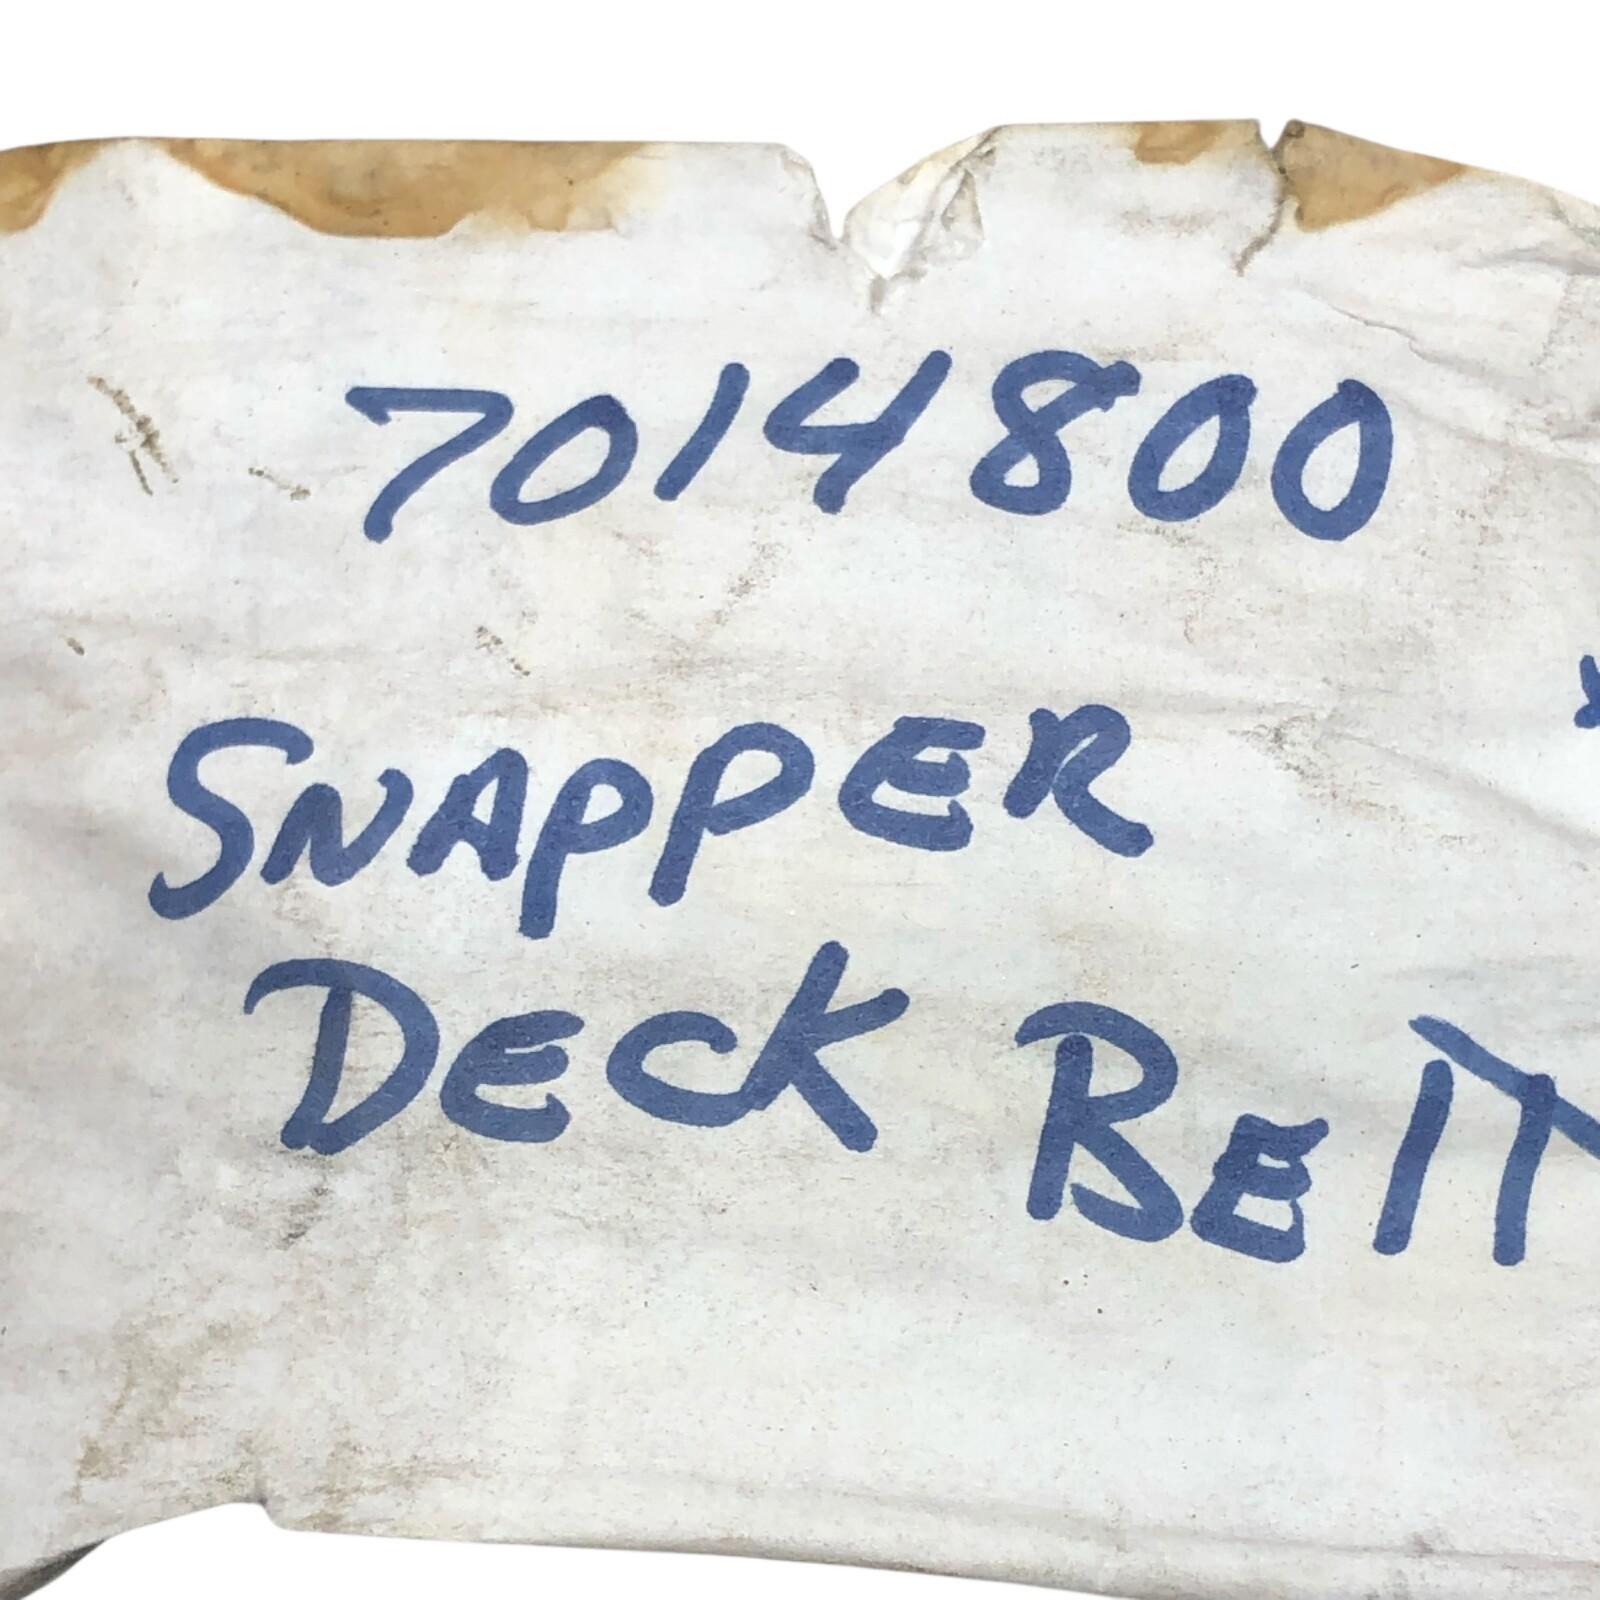 7014800
SNAPPER
DECK BElT